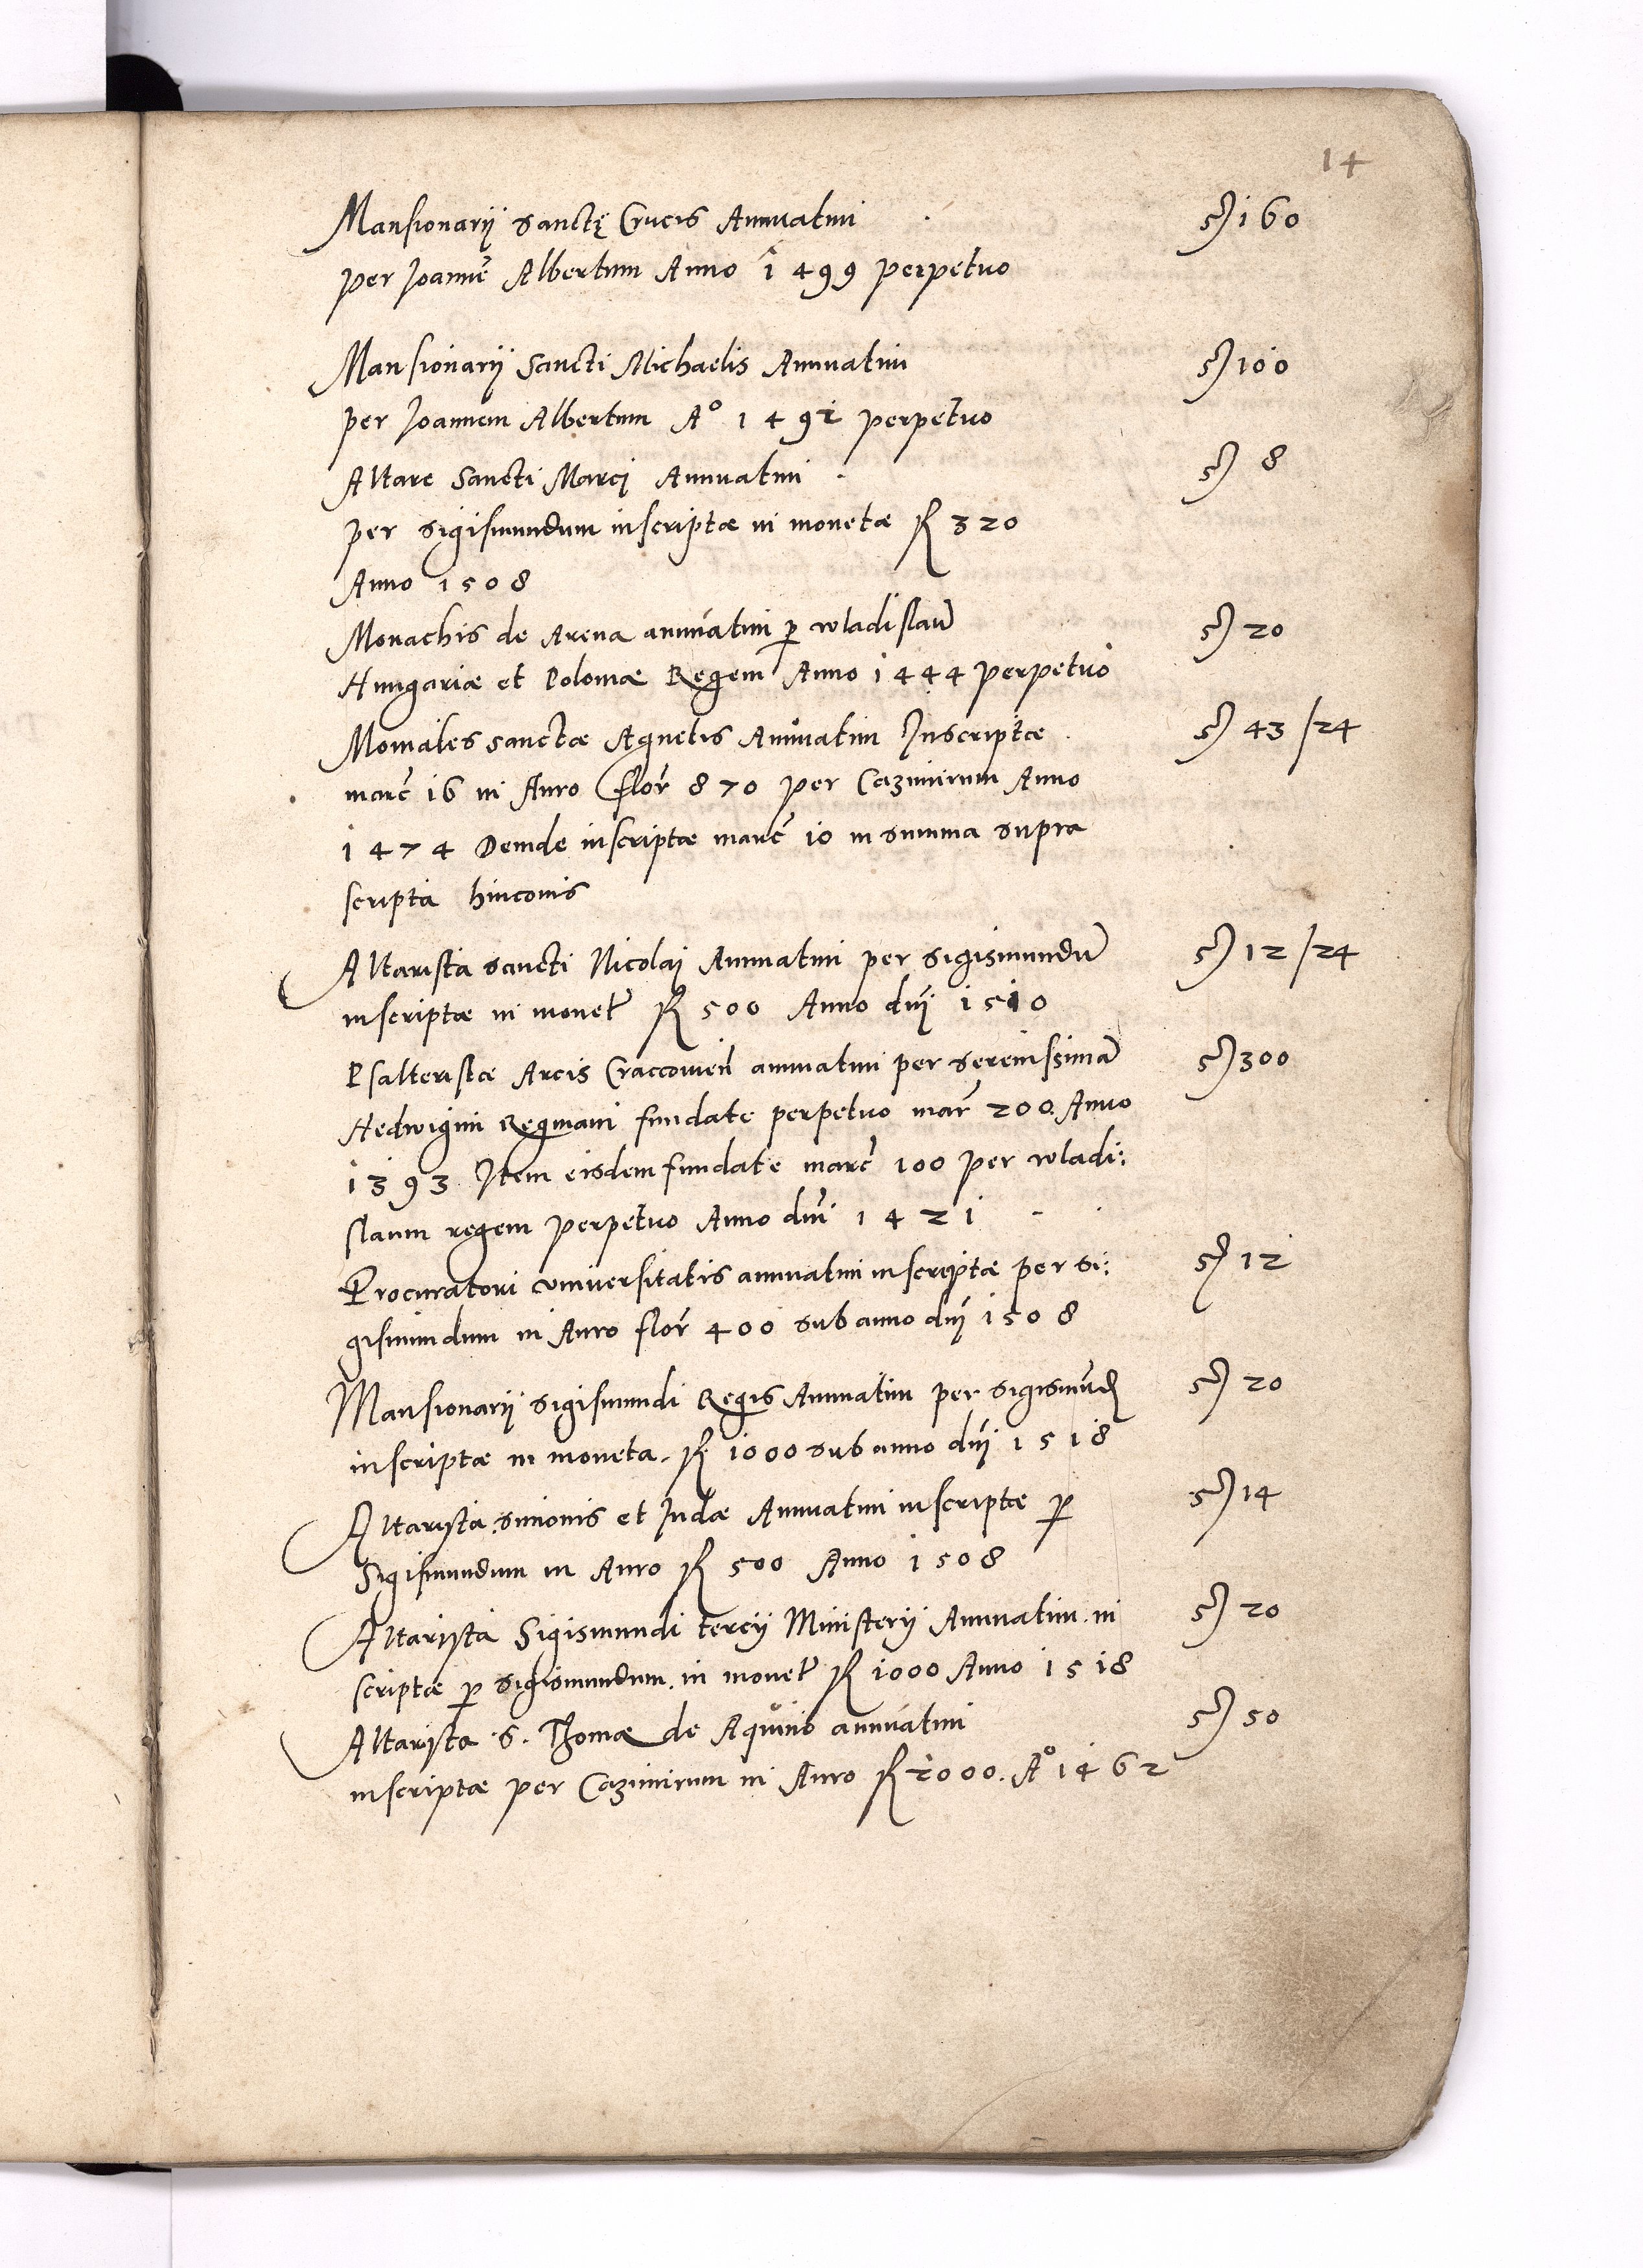 14
Mansionarij sanctę Crucis Annuatim 160
per Joannē Albertum Anno 1499 perpetuo
Mansionarij Sancti Michaelis Annuatim 100
per Joannem Albertum A° 1492 perpetuo
Altare Sancti Marcj Annuatim 8
per Sigismundum inscriptæ in monetæ 320
Anno 1508
Monachis de Arena annuatim p wladislaū 20
Hungariæ et Poloniæ Regem Anno 1444 perpetuo
Moniales sanctæ Agnetis Annuatim Inscriptæ 43/24
marc 16 in Auro flor 870 per Cazimirum Anno
1474 Deinde inscriptæ marc 10 in summa supra
scripta hinconis
Altarista sancti Nicolaj Annuatim per Sigismundū 12/24
inscriptæ in monet 500 Anno dnj 1510
Psalteristæ Arcis Craccovien annuatim per serenissimā 300
Hedwigim Reginam fundate perpetuo mar 200 Anno
1393 Item eisdem fundate marc 100 per wladi:
slaum regem perpetuo Anno dni 1421
Procuratori vniversitatis annuatim inscriptæ per Si: 12
gismundum in Auro flor 400 sub anno dnj 1508
Mansionarij Sigismundi Regis Annuatim per Sigismūd 20
inscriptæ in moneta. 1000 sub anno dnj 1518
Altarysta Simonis et Judæ Annuatim inscriptæ p 14
Sigismundum in Auro 500 Anno 1508
Altarysta Sigismundi tercij Ministerij Annuatim in 20
scriptæ p Sigismundum in monet 1000 Anno 1518
Altarysta S. Thomæ de Aquino annuatim 50
inscriptæ per Cazimirum in Auro 2000. A° 1462